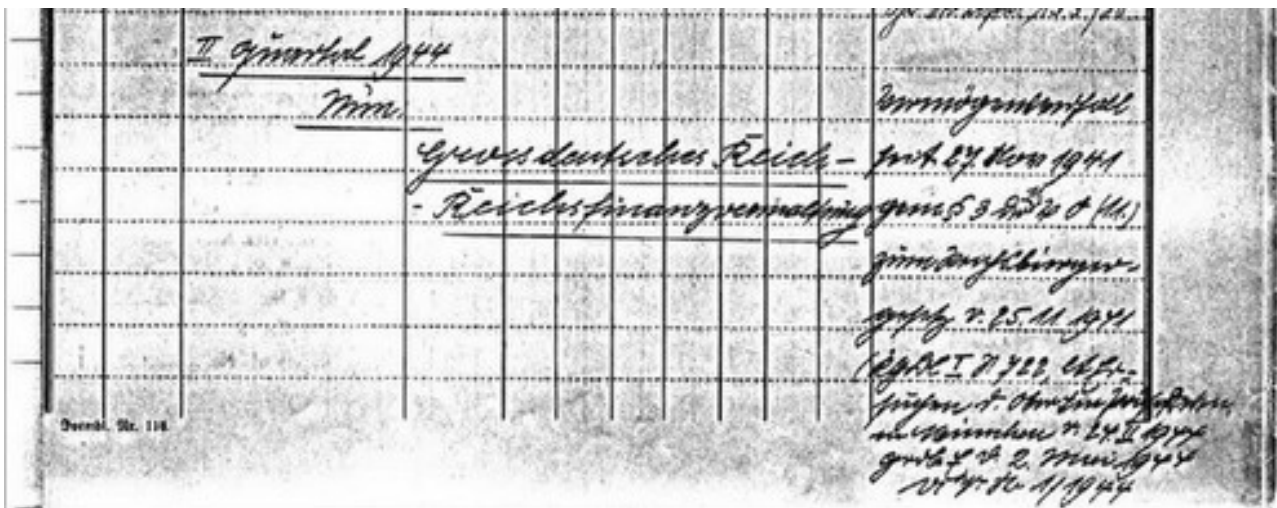 II Quartal 1944
Nun
Grossdeutsches Reich-
- Reichsfinanzverwaltung
Vermögensverfall
seit 27 Nov 1941
gem § 3 d. V O (11.)
zum Reichsbürger-
gesetz v. 25.11 1941
(RGBl I S 722, lt Er-
suchen d. Oberfinzpräsidenten
in München v. 24. II 1944
2. Mai 1944
1/1944
Formbl. Nr. 116